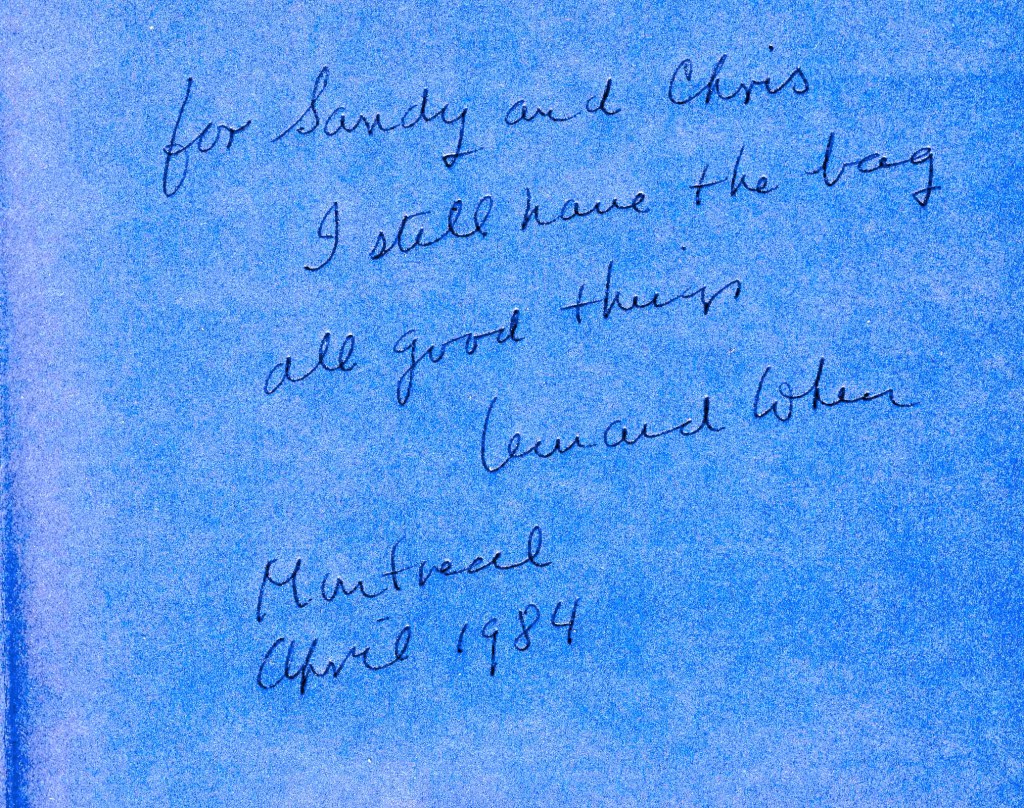 for Sandy and Chris
I still have the bag
all good things
Leonard Cohen
Montreal
April 1984